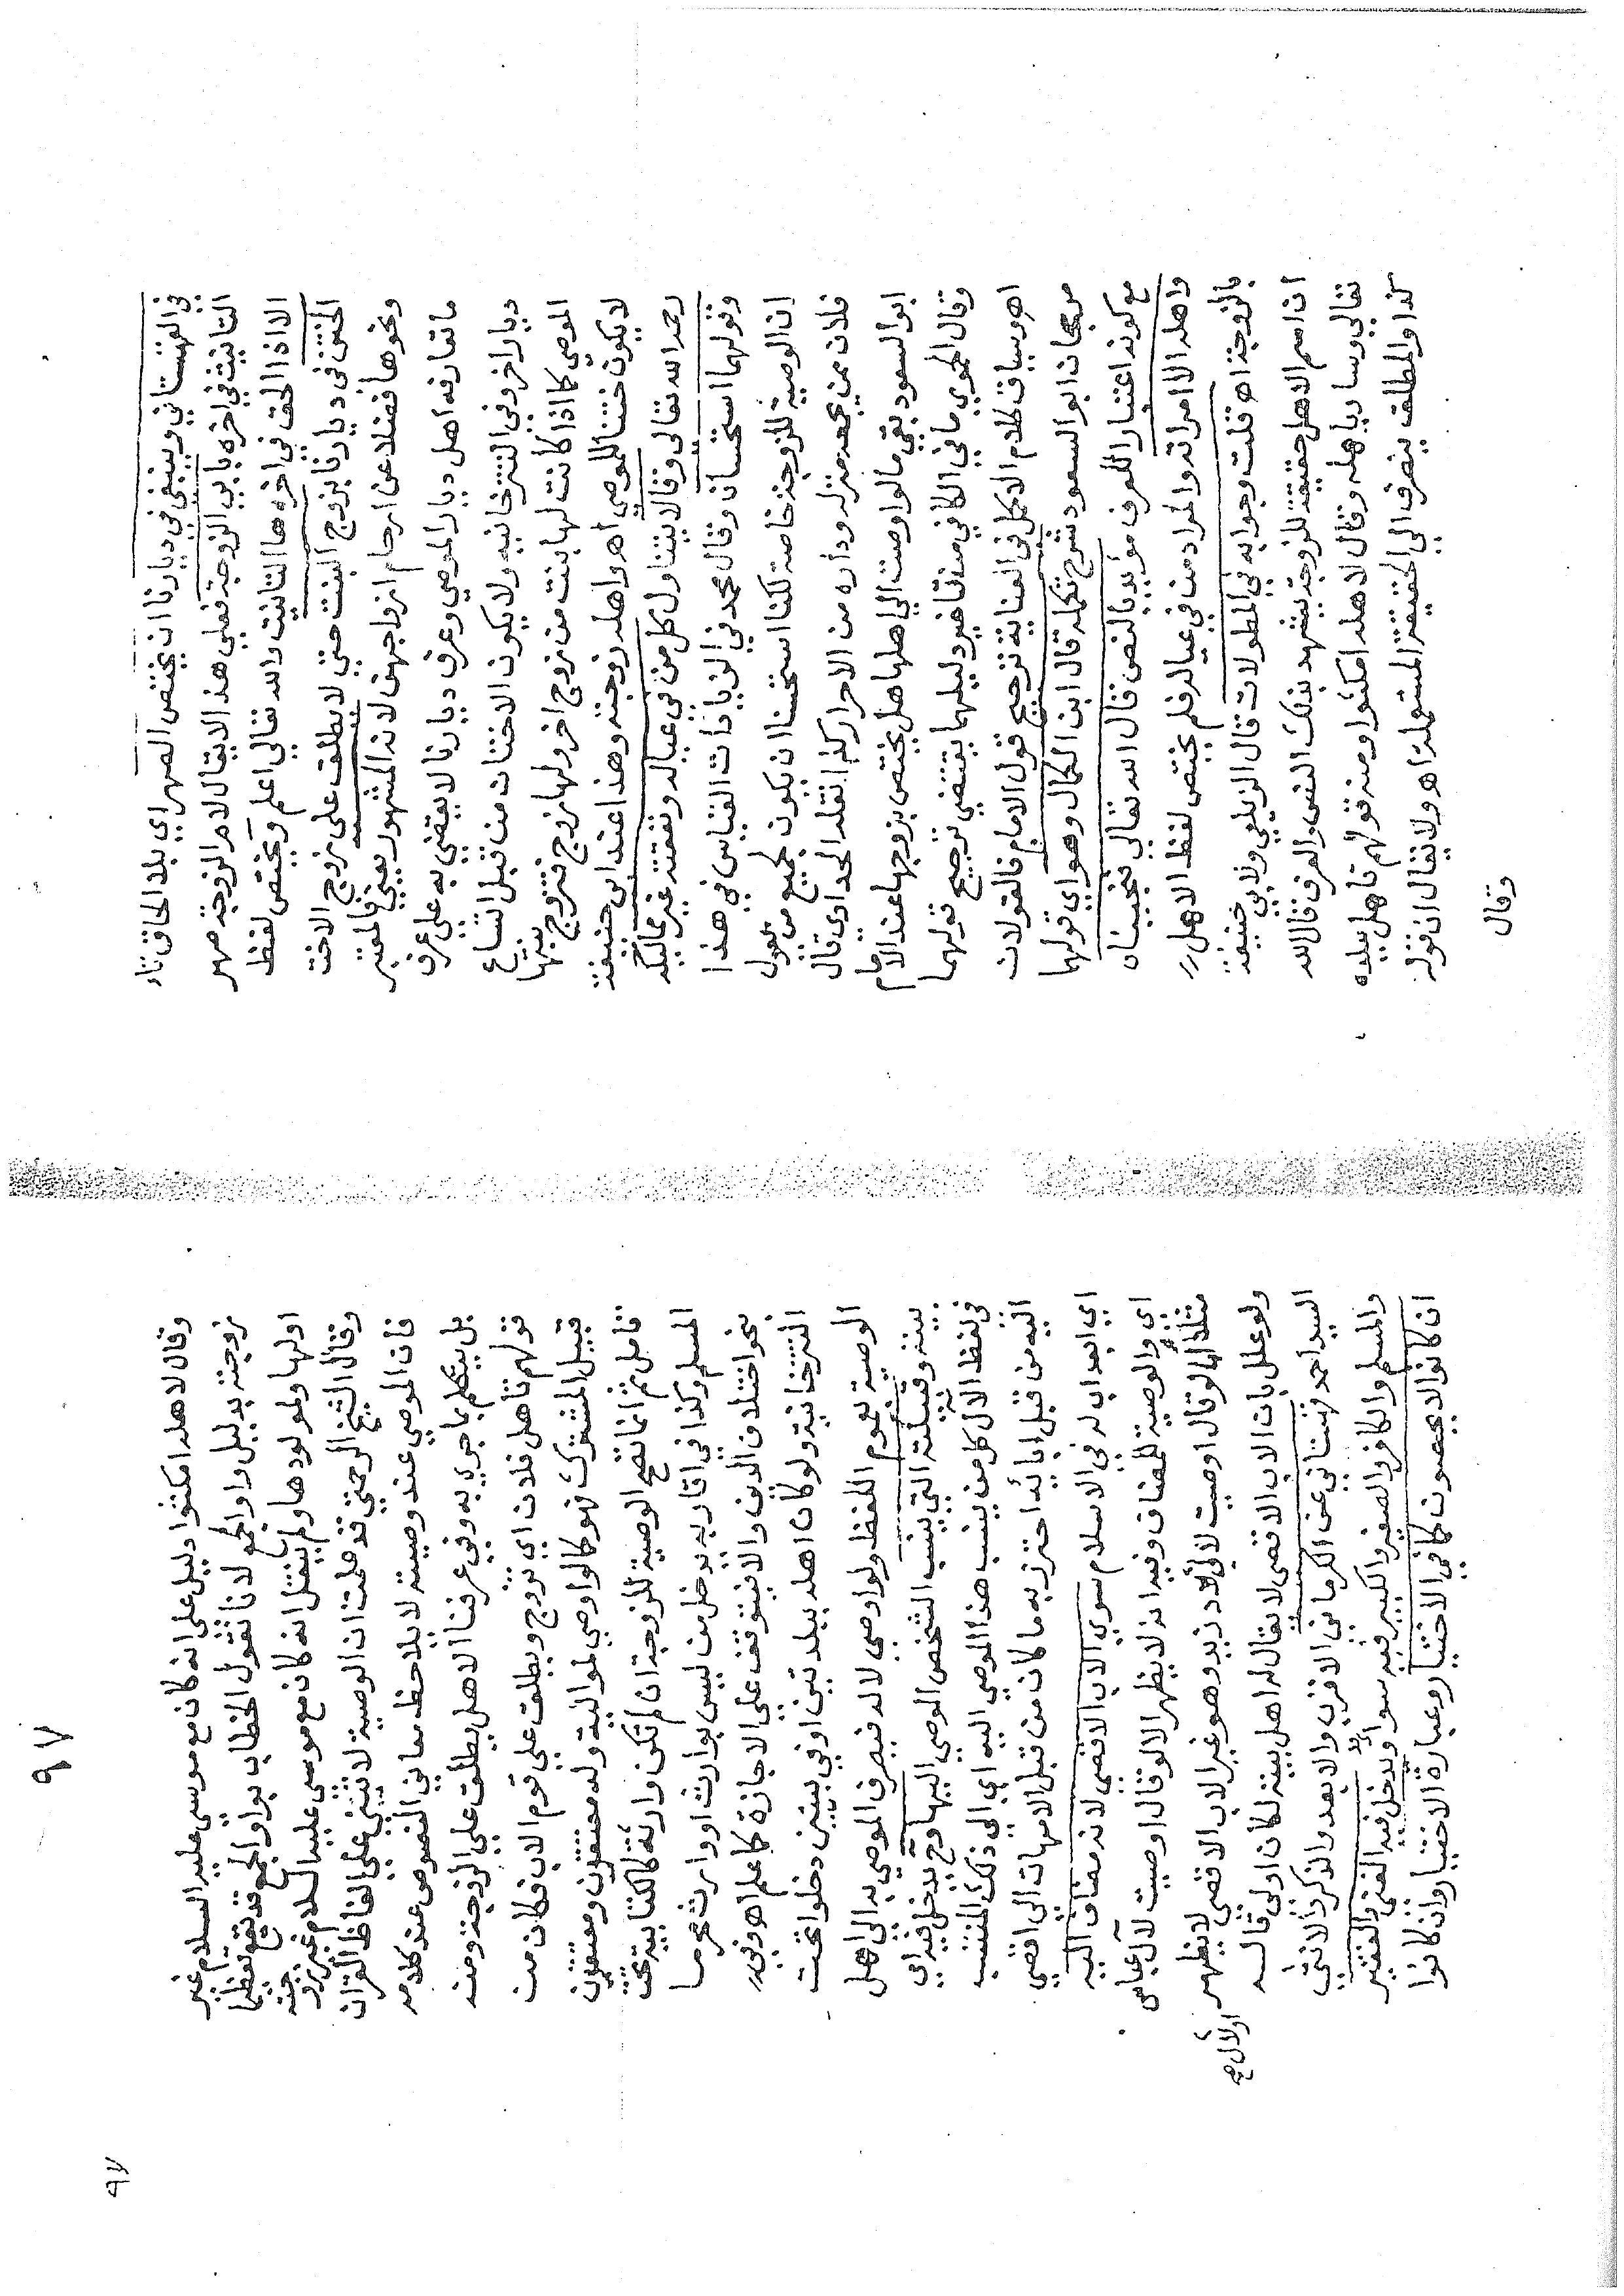 في القهستاني وينبغي في ديارنا ان يختص الصهر اي بلا الحاق تاء
التانيث في اخره بابي الزوجة فعلي هذا لا يقال لام الزوجة صهر
الا اذا الحق في اخره هاا لتانيث والله تعالي اعلم ويختص لفظ
الختن في ديارنا بزوج البنت حتي لا يطلق علي زوج الاخت
ونحوها فضلا عن ارحام ازواجهن لانه المشهور يعني فالمعتبر
ما تعارفه اهل ديار الموصي وعرف ديارنا لا يقضي به علي عرف
ديار اخر وفي التترخانيه ولا يكون الاختان من قبل النساء
الموصي كما اذا كانت لها بنت من زوج اخر ولها زوج فتزوج بنتها
لا يكون ختنا للموصي اهـ واهله زوجته وهذا عند ابي حنيفة
رحمه الله تعالي وقالا يتناول كل من في عياله ونفقته غير مماليكه
وقولهما استحسان وقال محمد في الزيادات القياس في هذا
ان الوصية للزوجة خاصة لكنا استحسنا ان يكون لجميع من يعول
فلان ممن يجمعه منزله وداره من الاحرار كذا نقله الحدادي قال
ابو السعود بقي ما لو اوصت الي اهلها هل يختص بزوجها عند الامام
وقال الحموي ما في الكافي من تاخير دليلهما يقتضي ترجيح قولهما
اهـ وسياق كلام الاكمل في العناية ترجيح قول الامام فالقولان
مرجحان ابو السعود شرح تكمله قال ابن الكمال وهو اي قولهما
مع كونه اعتبارا للعرف مؤيد بالنص قال الله تعالي فنجيناه
واهله الا امراته والمراد من في عياله فلم يختص لفظ الاهل
بالزوجة اهـ قلت وجوابه في المطولات قال الزيلعي ولابي حنيفة
ان اسم الاهل حقيقة للزوجة يشهد بذلك النص والعرف قال الله
تعالي وسار باهله وقال لاهله امكثوا ومنه قولهم تاهل ببلده
كذا والمطلق ينصرف الي الحقيقة المستعملة اهـ ولا يقال ان قوله
وقال
٩٧
وقال لاهله امكثوا دليل علي انه كان مع موسي عليه السلام غير
زوجته بدليل واو الجمع لانا نقول الخطاب بواو الجمع قد يقع تعظيما
اولها ولمولودها ولم ينقل انه كان مع موسي عليه السلام غير زوجته
وقال الشيخ الرحمتي قد علمت ان الوصية لا تبتني علي الفاظ القران
فان الموصي عند وصيته لا يلاحظ معاني النصوص عند كلامه
بل يتكلم بما جري به وفي عرفنا الاهل يطلق علي الزوجة ومنه
قولهم تأهل فلان اي تزوج ويطلق علي قوم الاب فكان من
قبيل المشترك فهو كما لو اوصي لمواليه وله معتقون ومعتقون
فتامل ثم انما تصح الوصية للزوجة ان لم تكن وارثة كالكتابية تحت
المسلم وكذا في اقاربه يدخل من ليس بوارث او وارث محرما
بنحو اختلاف الدين والا فيتوقف علي الاجازة كما علم اهـ وفي
التترخانية ولو كان اهله ببلدتين او في بيتين دخلوا تحت
الوصية لعموم اللفظ ولو اوصي لاله فيصرف الموصي به الي اهل
بيته وقبيلته التي ينسب الشخص الموصي اليها وح يدخل فيه اي
في لفظ الال كل من ينسب هذا الموصي اليه اي الي ذلك المنتسب
اليه من قبل ابائه احترز به ما كان من قبل الامهات الي اقصي
اي ابعد اب له في الاسلام سوي الاب الاقصي لانه مضاف اليه
اي والوصية للمضاف وفيه انه لا يظهر الا لو قال اوصيت لال عباس
مثلا اما لو قال اوصيت لال زيد وهو غير الاب الاقصي لا يظهر
ولو علل بان الاب الاقصي لا يقال له اهل بيته لكان اولي قاله
السيد احمد قهستاني عن الكرماني الاقرب والابعد والذكر والانثي
والمسلم والكافر والصغير والكبير فيه سواء ويدخل فيه الغني والفقير
ان كانوا لا يحصون كما في الاختيار وعبارة الاختيار وان كانوا
٩٧